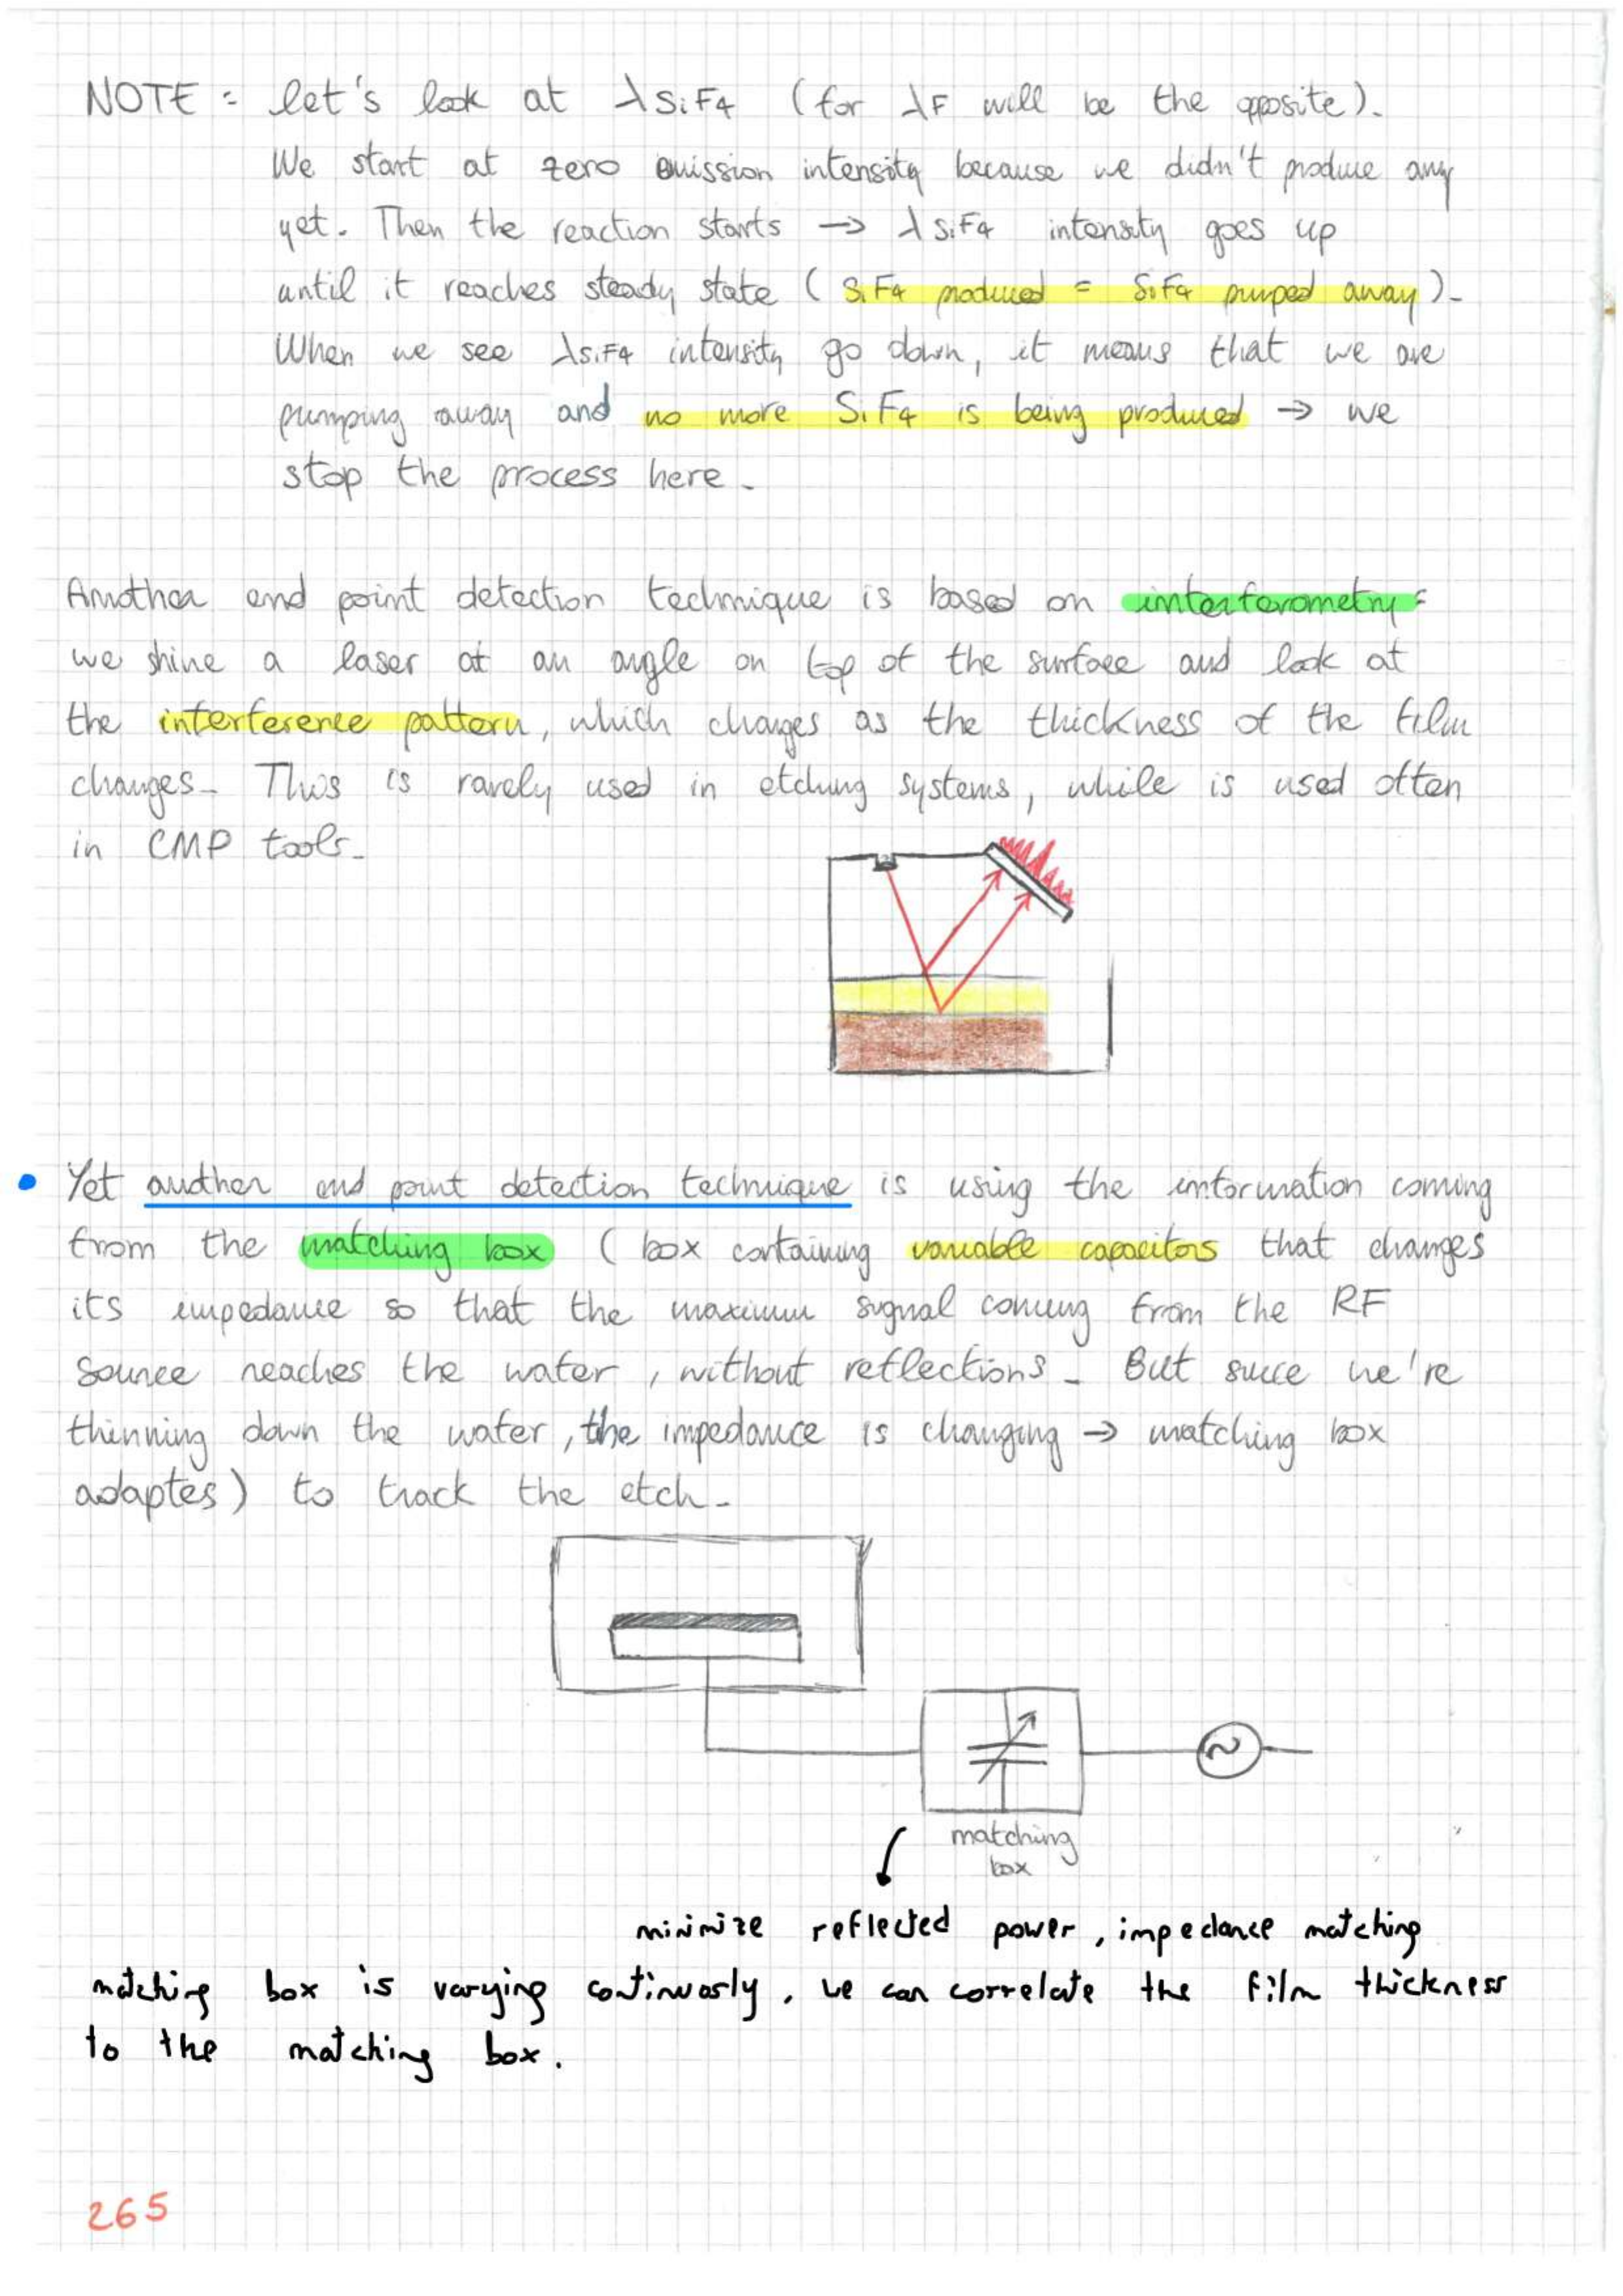 NOTE : let's look at λSiF4 (for λF will be the opposite).
We start at zero emission intensity because we didn't produce any
yet. Then the reaction starts → λSiF4 intensity goes up
until it reaches steady state (SiF4 produced = SiF4 pumped away).
When we see λSiF4 intensity go down, it means that we are
pumping away and no more SiF4 is being produced → we
stop the process here.
Another end point detection technique is based on interferometry:
we shine a laser at an angle on top of the surface and look at
the interference pattern, which changes as the thickness of the film
changes. This is rarely used in etching systems, while is used often
in CMP tools.
• Yet another end point detection technique is using the information coming
from the matching box (box containing variable capacitors that changes
its impedance so that the maximum signal coming from the RF
source reaches the wafer, without reflections. But since we're
thinning down the wafer, the impedance is changing → matching box
adaptes) to track the etch.
matching
box
minimize reflected power, impedance matching
matching box is varying continuosly, we can correlate the film thickness
to the matching box.
265